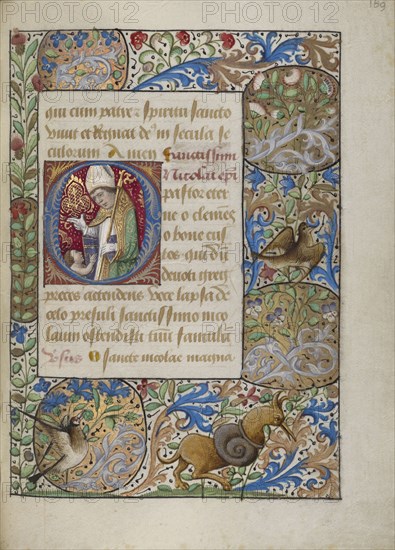 189
qui cum patre et spiritu sancto
vivit et regnat de' in secula se
culorum Amen Sanctissim
Nicolai epi
pastor eter
ne o clemes
o bone cus
tos qui du'
devoti greg'
preces attendens voce lapsa de
celo presuli sanctissimo nico
laum ostendisti tuu' famulu'
sancte nicolae magna